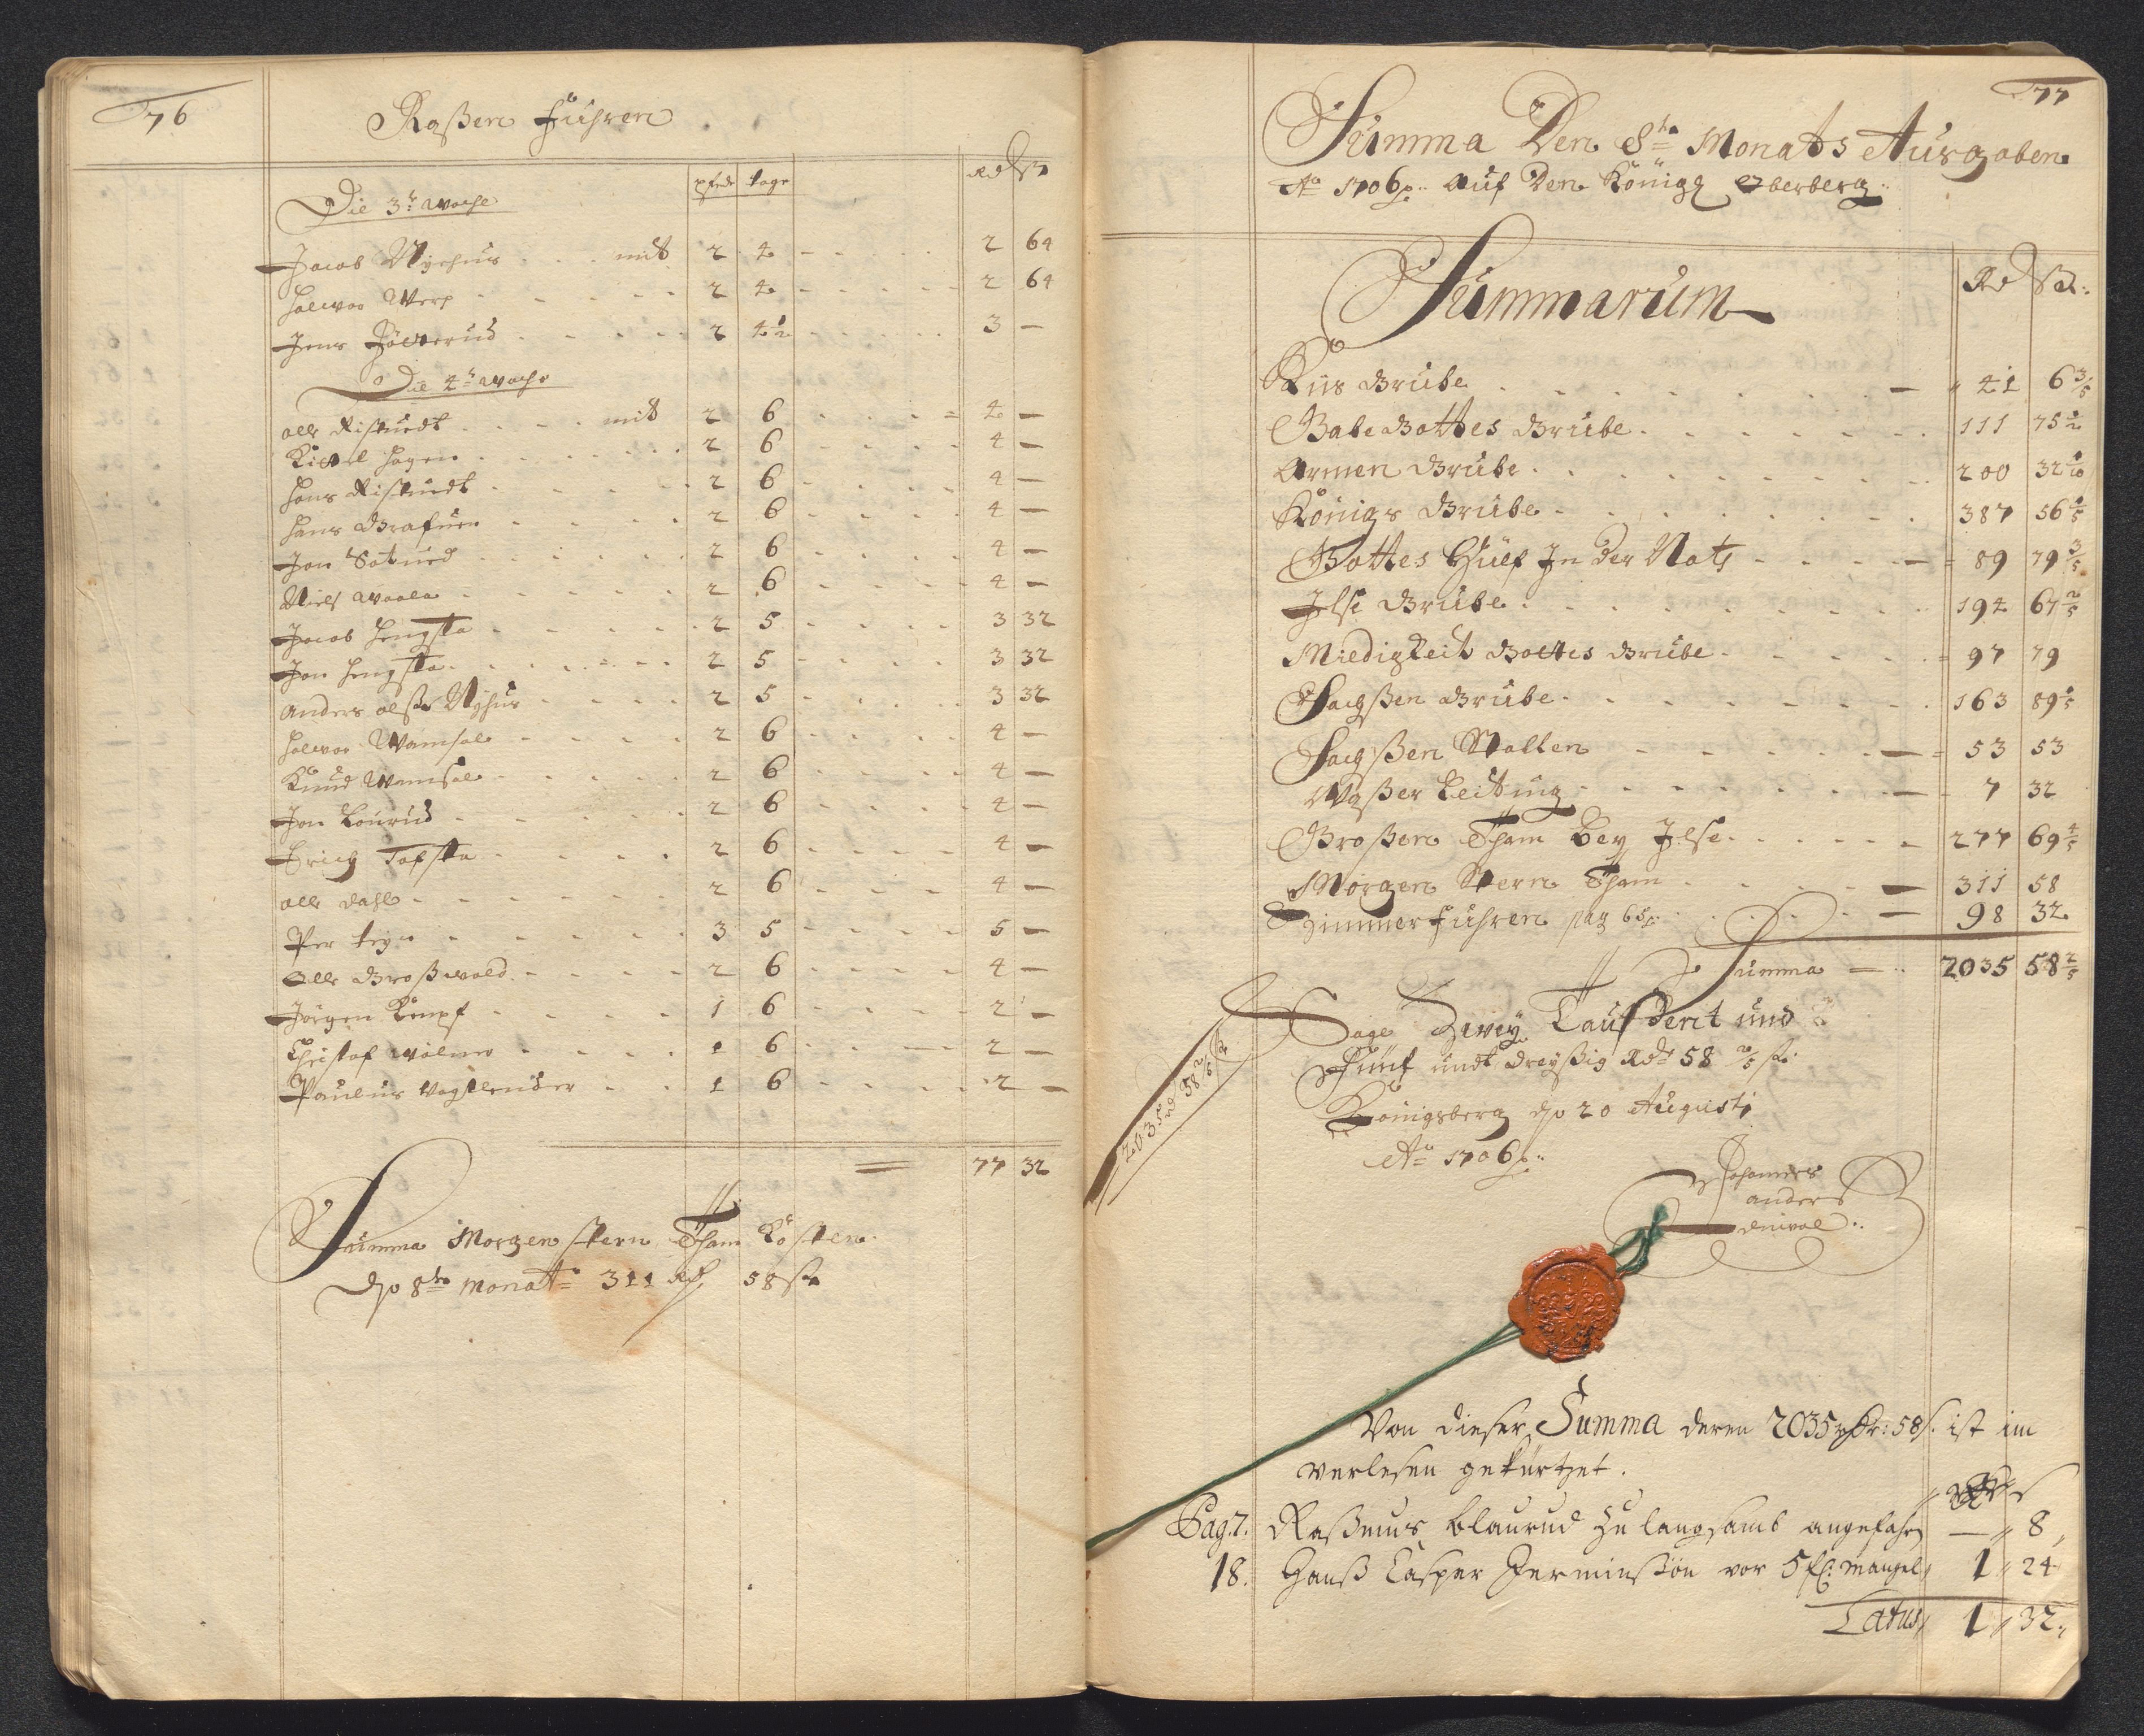 76
Raßen Führen
pferde tage Rd ß
Die 3te Woche
Jacob Nyehus mit 2 4 2 64
Halvor Werp 2 4 2 64
Jens 2 4½ 3 —
Die 4te Woche
olle Ristuedt mit 2 6 4 —
Kittel Hagen 2 6 4 —
Hans Ristuedt 2 6 4 —
Hans 2 6 4 —
Jon 2 6 4 —
Niels 2 6 4 —
Jacob Hengsta 2 5 3 32
Jon Hengsta 2 5 3 32
Anders olße Nyhus 2 5 3 32
Halvor Wamsal 2 6 4 —
Knud Wamsal 2 6 4 —
Jon Lourud 2 6 4 —
Erich Tofsta 2 6 4 —
olle Dahl 2 6 4 —
Per 3 5 5 —
Olle Großwald 2 6 4 —
Jörgen Kempf 1 6 2 —
Christof 1 6 2 —
Paulus Vogtlender 1 6 2 —
77 32
Summa Morgenstern Tham Kosten
dho 8te Monat 311 Rd 58 ß
77
Summa Den 8te Monats Ausgaben
Ao 1706 auf Den König Oberberg
Summarum Rd ß
Kiis Grube 41 6 3/5
Gabe Gottes Grube 111 75 1/2
Armen Grube 200 32 1/10
Königs Grube 387 56 1/5
Gottes Hülf Jn der Noth 89 79 3/5
Jlse Grube 194 67 2/5
Mildigkeit Gottes Grube 97 79
Sachßen Grube 163 89 1/5
Sachßen Stollen 53 53
Waßer Leitung 7 32
Großen Tham bey Jlse 277 69 4/5
Morgen Stern Tham 311 58
Zimmer Führen pag 65 98 32
Summa 2035 58 2/5
Sage Zwey Taußent und
Fünf undt dreyßig Rdr 58 2/5 ß
2035 rd 58 2/5 ß
Königsberg dho 20 Augusti
Ao 1706
Johannes
anders
Von dieser Summa deren 2035 : 58 ß. ist im
verlesen gekürtzet.
Pag. 7. Raßmus Blaurud zu langsamb angefahrn — 8
18. Hanß Casper Jerminßön vor 5 mangel 1 24
Latus 1 32